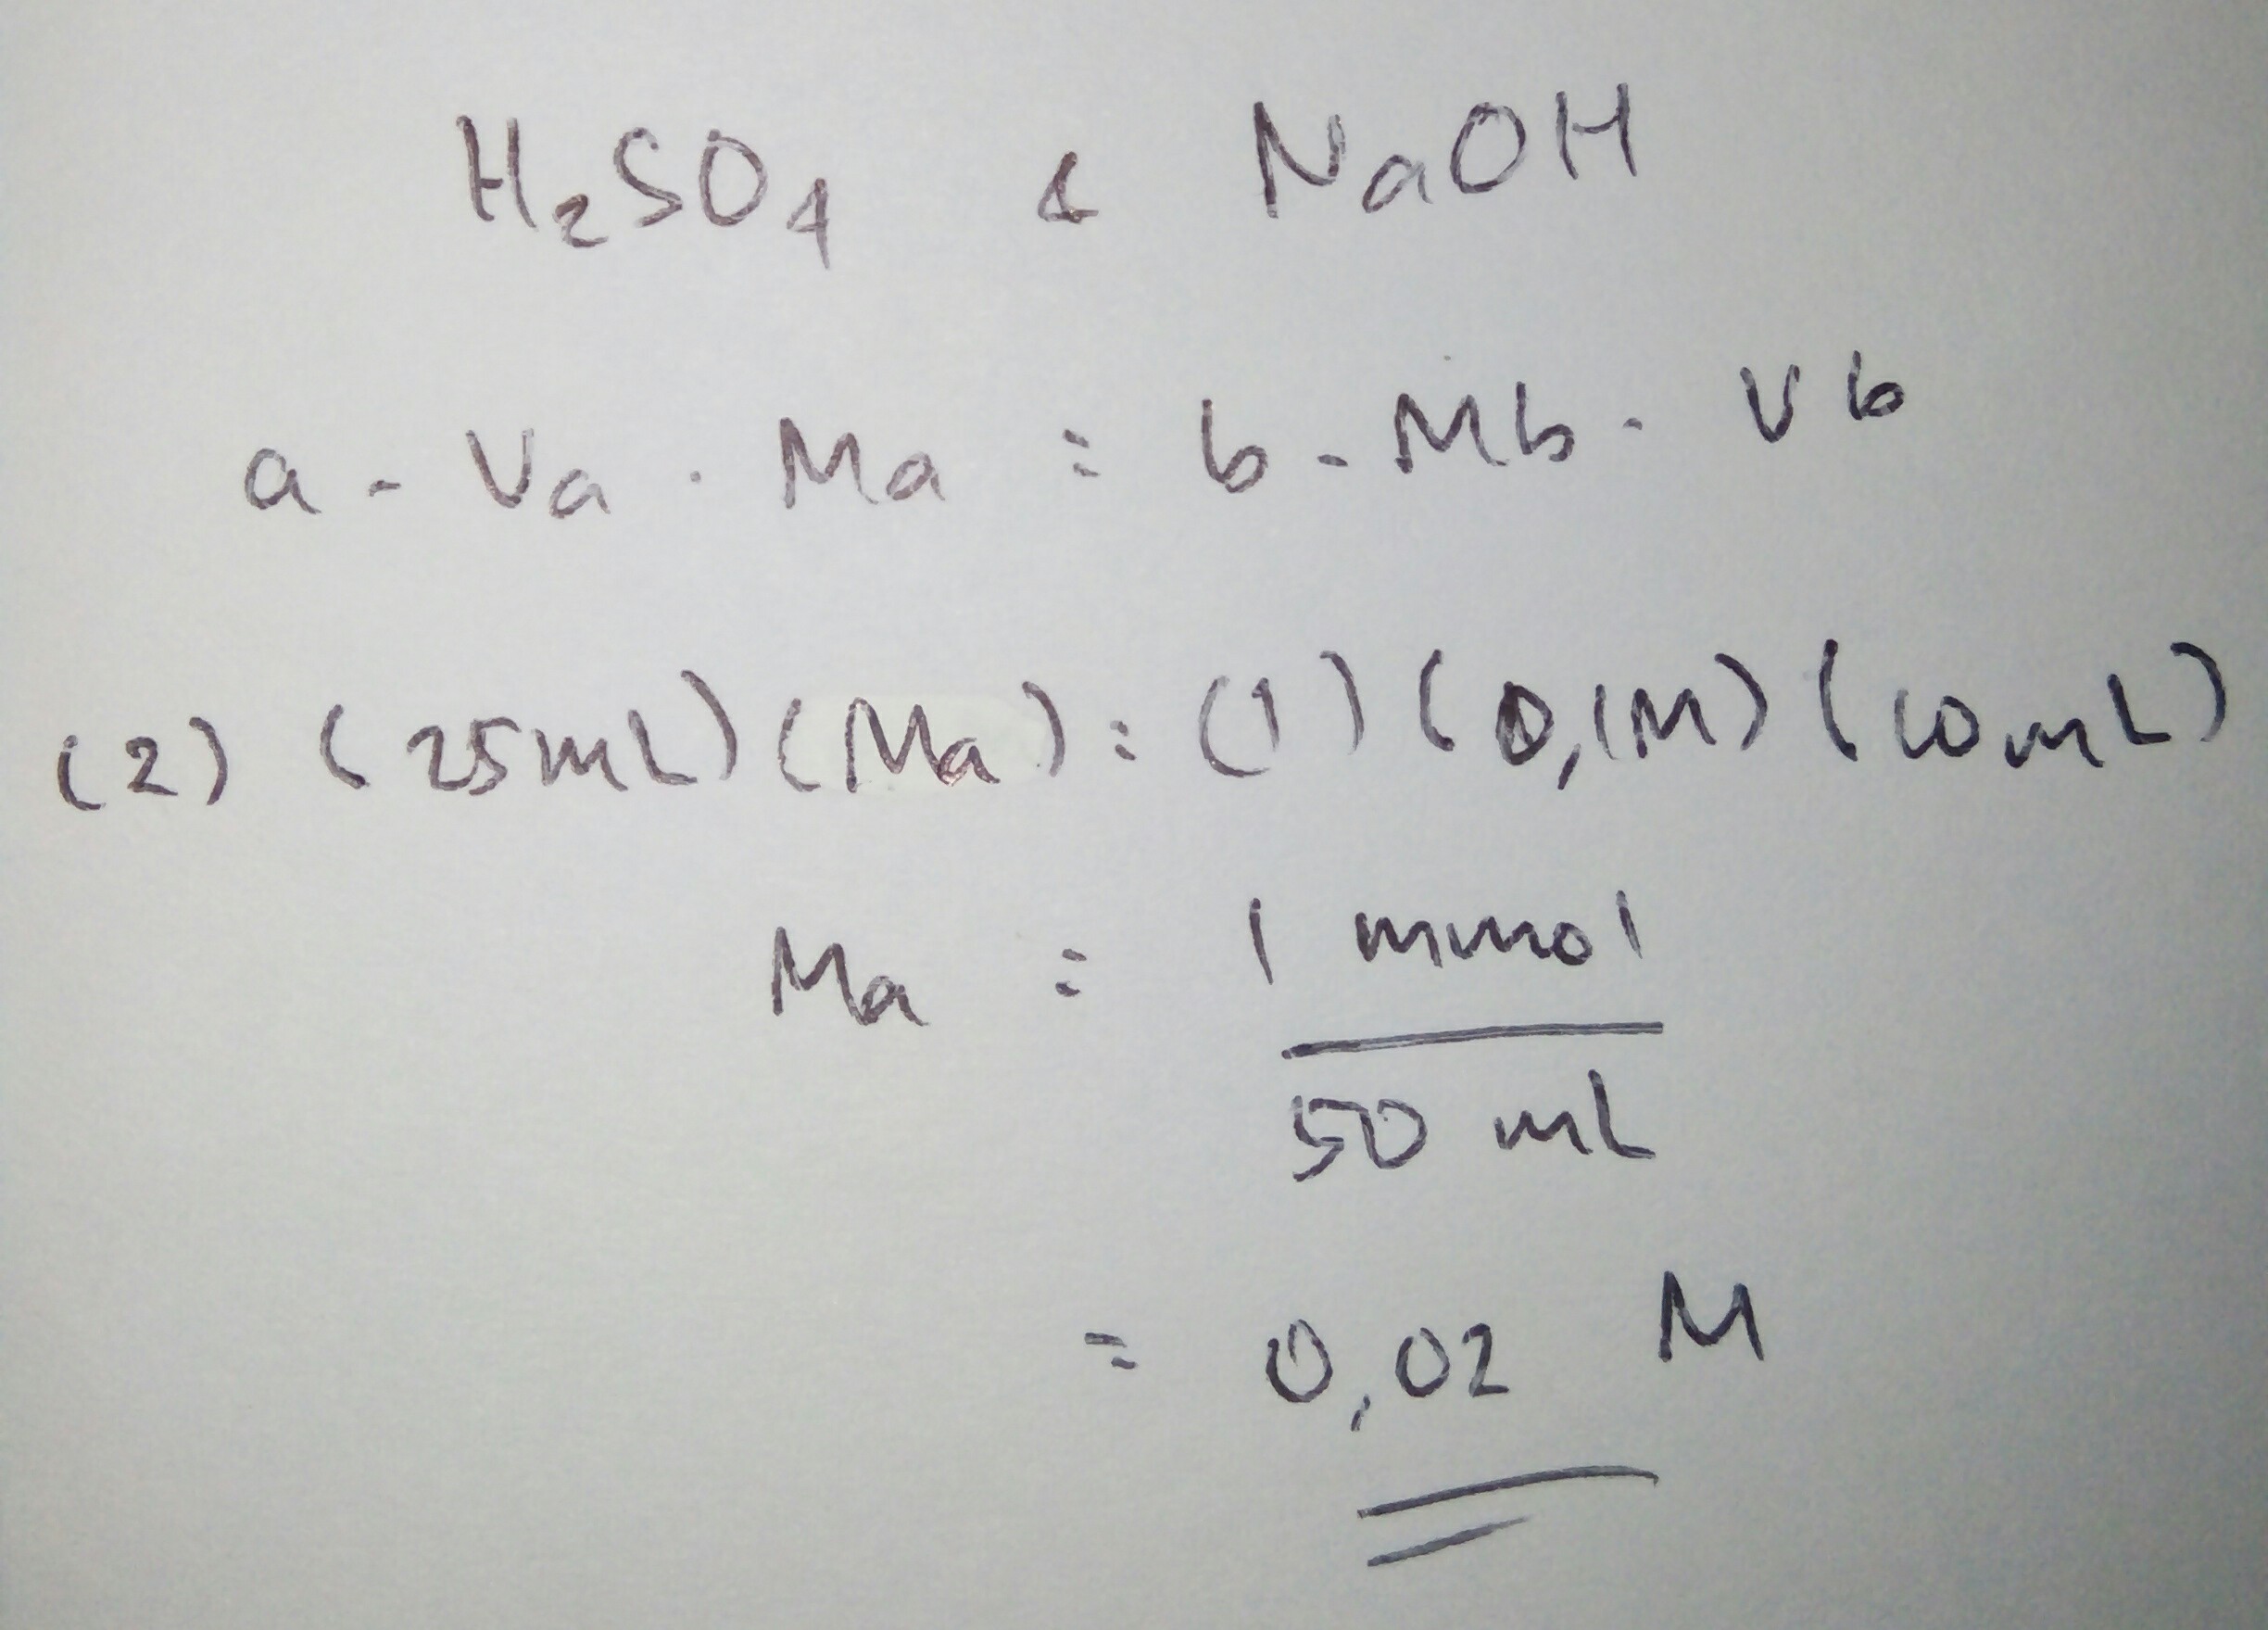 H₂SO₄ & NaOH
a . Va . Ma = b . Mb . Vb
(2) (25mL) (Ma) = (1) (0,1M) (10mL)
Ma = 1 mmol
50 mL
= 0,02 M